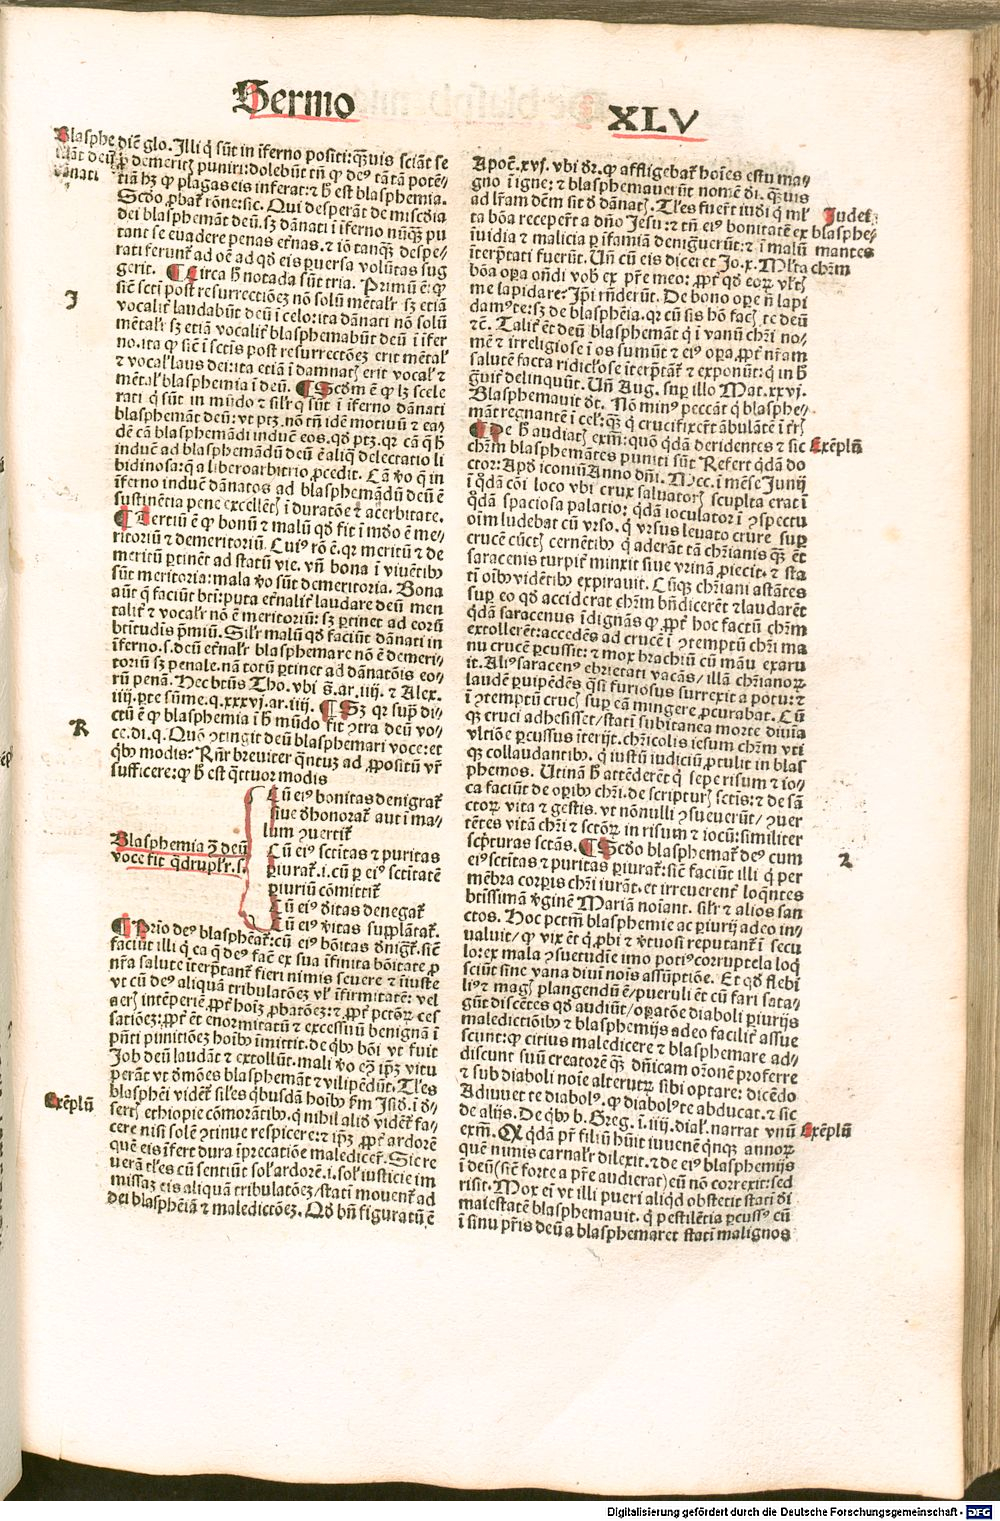 Sermo XLV
Blasphe
mãt deũ
dãnati
diẽ glo. Illi q̃ sũt in ĩferno positi: q̃uis sciãt se
p̱ demeritꝭ puniri: dolebũt tñ ꝙ deꝰ tãtã potẽ-
tiã hꝫ ꝙ plagas eis inferat: ⁊ h̃ est blasphemia.
Scďo ꝓbat̃ rõne: sic. Qui desperãt de mĩcďia
dei blasphemãt deũ. sꝫ dãnati ĩ ĩferno nũq̃ pu
tant se euadere penas et̃nas. ⁊ iõ tanq̃ despe-
rati ferunt̃ ad oẽ ad qď eis ꝑuersa volũtas sug
gerit. ¶ Circa h̃ notada sũt tria. Primũ ẽ: ꝙ
J
siẽ scti post resurrectiõeꝫ nõ solũ mẽtalr̃ sꝫ etiã
vocalit̃ laudabũt deũ ĩ celo: ita dãnati nõ solũ
mẽtalr̃ sꝫ etiã vocalit̃ blasphemabũt deũ ĩ ĩfer
no. ita ꝙ siẽ ĩ sctis post resurrectõeꝫ erit mẽtal̃
⁊ vocal̃ laus dei: ita etiã ĩ damnatꝭ erit vocal̃ ⁊
mẽtal̃ blasphemia ĩ deũ. ¶ Scďm ẽ ꝙ lꝫ scele
rati q̃ sũt in mũdo ⁊ silr̃ q̃ sũt ĩ ĩferno dãnati
blasphemãt deũ: vt ptꝫ. nõ tñ idẽ motiuũ ⁊ eaꝫ
dẽ cã blasphemãdi induẽ eos. qď ptꝫ. qꝛ cã q̃ h̃
induẽ ad blasphemãdũ deũ ẽ aliq̃ delectatio li
bidinosa: q̃ a liberoarbitrio ꝓcedit. Cã ṽo q̃ in
ĩferno induẽ dãnatos ad blasphemãdũ deũ ẽ
sustinẽtia pene excellẽtꝭ ĩ duratõe ⁊ acerbitate.
¶ Tertiũ ẽ ꝙ bonũ ⁊ malũ qď fit ĩ mďo ẽ me-
ritoriũ ⁊ demeritoriũ. Cuiꝰ rõ ẽ. qꝛ meritũ ⁊ de
meritũ ꝑtinẽt ad statũ vie. vñ bona ĩ viuẽtibꝰ
sũt meritoria: mala ṽo sũt demeritoria. Bona
aũt q̃ faciũt bti: puta et̃nalit̃ laudare deũ men
talit̃ ⁊ vocalr̃ nõ ẽ meritoriũ: sꝫ ꝑtinet ad eorũ
btĩtudis p̃miũ. Silr̃ malũ qď faciũt dãnati in
ĩferno. s. deũ et̃nalr̃ blasphemare nõ ẽ demeri-
toriũ sꝫ penale. nã totũ ꝑtinet ad dãnatõis eo-
rũ penã. Hec btũs Tho. vbi s̃. ar. iiij. ⁊ Alex.
iiij. ꝑte sũme. q. xxxvj. ar. iiij. ¶ Sꝫ qꝛ sup̃ di-
R
ctũ ẽ ꝙ blasphemia ĩ h̃ mũdo fit ↄtra deũ vo-
ce. di. q. Quõ ↄtingit deũ blasphemari voce: et
q̃bꝰ modis? Rñr̃ breuiter q̃ntuꝫ ad ꝓpositũ vr̃
sufficere: ꝙ h̃ est q̃ttuor modis
Blasphemia ↄ̃ deũ
voce fit q̃druplr̃. s.
Cũ eiꝰ bonitas denigrat̃
siue ďhonorat̃ aut ĩ ma-
lum ↄuertit̃
Cũ eiꝰ sctitas ⁊ puritas
ꝑiurat̃. i. cũ ꝑ eiꝰ sctitatẽ
ꝑiuriũ cõmittit̃
Cũ eiꝰ ďitas denegat̃
Cũ eiꝰ ṽitas supplãtat̃.
¶ Prio deꝰ blasphẽat̃: cũ eiꝰ bõitas ďnigr̃t̃. siẽ
faciũt illi q̃ ea q̃ deꝰ facẽ ex sua ĩfinita bõitate ꝓ
nr̃a salute iterp̃tant̃ fieri nimis seuere ⁊ iĩuste
vt cũ deꝰ aliquã tribulatõeꝫ vl̃ ĩfirmitatẽ: vel
aerꝭ intẽperiẽ ꝓpt̃ hoĩꝫ ꝓbatõeꝫ: ⁊ ꝓpt̃ pctõꝝ ces
satiõeꝫ: ꝓpt̃ ẽt enormitatũ ⁊ excessuũ benignã ĩ
pñti punitiõeꝫ hoĩbꝰ ĩmittit. de q̃bꝰ bõi vt fuit
Job deũ laudãt ⁊ extollũt. mali ṽo eꝫ ip̃ꝫ vitu
ꝑerãt vt ďmões blasphemãt ⁊ vilipẽdũt. Tĩles
Exẽplũ
blasphẽi vidẽt̃ siles q̃busdã hoĩbꝰ ẽm Isiď. ĩ ď-
sertꝭ ethiopie cõmorãtibꝰ. q̃ nihil aliď vidẽt̃ fa-
cere nisi solẽ ↄtinue respicere: ⁊ ip̃ꝫ ꝓpt̃ ardorẽ
quẽ eis ĩfert dura ĩprecatiõe maledicet̃. Sic re
uerã tĩles cũ sentiũt solꝭ ardorẽ. i. solꝭ iusticie im
missaꝫ eis aliquã tribulatõeꝫ/ stati mouent̃ ad
dei blasphẽiã ⁊ maledictõeꝫ. Qď bñ figuratũ ẽ
Apoc̃. xvj. vbi ďr. ꝙ affligebãt̃ hoĩes estu ma-
gno ĩ igne: ⁊ blasphemauerũt nomẽ ďi. q̃uis
ad lr̃am dẽm sit ď dãnatꝭ. Tĩles fuer̃t iudi q̃ ml̃
Judeĩ
blasphe-
mantes
chr̃m
ta bõa recepert̃ a dño Jesu: ⁊ tñ eiꝰ bonitatẽ ex
ĩuidia ⁊ malicia ꝑ ĩfamiã denigrauerũt: ⁊ ĩ malũ
iterp̃tati fuerũt. Uñ cũ eis diceret Jo. x. Ml̃ta
bõa oꝑa oñdi vob̃ ex pr̃e meo: ꝓpt̃ qď eoꝝ vl̃tꝭ
me lapidare: Ip̃i rñderũt. De bono oꝑe ñ lapi
damꝰ te: sꝫ de blasphẽia. qꝛ cũ sis hõ facꝭ te deũ
⁊c. Talit̃ ẽt deũ blasphemãt q̃ ĩ vanũ chr̃i no-
mẽ ⁊ irreligiose ĩ os sumũt ⁊ eiꝰ oꝑa ꝓpt̃ nr̃am
salutẽ facta ridiclose iterp̃tãt̃ ⁊ exponũt: q̃ in h̃
g̃uit̃ delinquũt. Uñ Aug. suꝑ illo Mat. xxvj.
Blasphemauit ďt. Nõ minꝰ peccãt q̃ blasphe-
mãt regnantẽ ĩ celꝭ: q̃ꝫ q̃ crucifixert̃ ãbulãtẽ ĩ tr̃ꝭ
¶ De h̃ audiatꝭ exm̃: quõ q̃dã deridentes ⁊ sic
Exẽplũ
chr̃m blasphemãtes puniti sũt Refert q̃dã do
ctor: Apď iconiũ Anno dñi. Mcc. ĩ mẽse Junij
ĩ q̃dã cõi loco vbi crux saluatorꝭ sculpta erat ĩ
q̃dã spaciosa palatio: q̃dã ioculator ĩ ↄspectu
oĩm ludebat cũ vrso. q̃ vrsus leuato crure suꝑ
crucẽ cũctꝭ cernẽtibꝰ q̃ aderãt tã chr̃ianis q̃ꝫ ẽt
saracenis turpit̃ minxit siue vrinã ꝓiecit. ⁊ sta
tĩ oĩbꝰ vidẽtibꝰ expirauit. Cũqꝫ chr̃iani astãtes
suꝑ eo qď acciderat chr̃m bñdicerẽt ⁊ laudarẽt
q̃dã saracenus ĩdignãs ꝙ ꝓpt̃ hoc factũ chr̃m
extollerẽt: accedẽs ad crucẽ ĩ ↄtemptũ chr̃i ma
nu crucẽ ꝑcussit: ⁊ mox brachiũ cũ mãu exaru
it. Aliꝰ saracenꝰ ebrietati vacãs/ illã chr̃ianoꝝ
laudẽ ꝑuipẽdẽs q̃si furiosus surrexit a potu: ⁊
ĩ ↄtemptũ crucꝭ suꝑ eã mingere ꝓcurabat. Cũ
qꝫ cruci adhesisset/ statĩ subitanea morte diuia
vltiõe ꝑcussus ĩterijt. chr̃icolis iesum chr̃m vti
qꝫ collaudantibꝰ. q̃ iustũ iudiciũ ꝓtulit in blas
phemos. Utinã h̃ attẽderẽt q̃ sepe risum ⁊ io-
ca faciũt de oꝑibꝰ chr̃i. de scripturꝭ sctis: ⁊ de sã
ctoꝝ vita ⁊ gestis. vt nõnulli ↄsueuerũt/ ↄuer
tẽtes vitã chr̃i ⁊ sctõꝝ in risum ⁊ iocũ: similiter
scp̃turas sctãs. ¶ Scďo blasphemat̃ deꝰ cum
2
eiꝰ sctitas ⁊ puritas ꝑiurat̃: siẽ faciũt illi q̃ per
mẽbra corpis chr̃i iurãt. et irreuerent̃ loq̃ntes
btissimã ṽginẽ Mariã noĩant. silr̃ ⁊ alios san
ctos. Hoc pctm̃ blasphemie ac ꝑiurij adeo in-
ualuit/ ꝙ vix ẽt q̃ ꝓbi ⁊ ṽtuosi reputant̃ ĩ secu
lo: ex mala ↄsuetudie imo potiꝰ corruptela loq̃
sciũt sine vana diuĩ nois assũptiõe. Et qď flebĩ
liꝰ ⁊ magꝭ plangendũ ẽ/ pueruli ẽt cũ fari sata-
gũt discẽtes qď audiũt/ oꝑatõe diaboli ꝑiurijs
maledictiõibꝰ ⁊ blasphemijs adeo facilit̃ assue
scunt: ꝙ citius maledicere ⁊ blasphemare ad-
discunt suũ creatorẽ q̃ꝫ dñicam or̃onẽ proferre
⁊ sub diaboli noĩe alterutꝝ sibi optare: dicẽdo
Adiuuet te diabolꝰ. ꝙ diabolꝰ te abducat. ⁊ sic
de alijs. De q̃bꝰ b. Greg. ĩ. iiij. dial. narrat vnũ
Exẽplũ
exm̃. Qꝛ q̃dã pr̃ filiũ hũit iuuenẽ q̃nqꝫ annoꝝ
quẽ nimis carnalr̃ dilexit. ⁊ de eiꝰ blasphemijs
ĩ deũ (siẽ forte a pr̃e audierat) eũ nõ correxit: sed
risit. Mox ei vt illi pueri aliqď obstetit statĩ ďi
maiestatẽ blasphemauit. q̃ pestilẽtia ꝑcussꝰ cũ
ĩ sinu pr̃is deũ a blasphemaret statĩ malignos
Digitalisierung gefördert durch die Deutsche Forschungsgemeinschaft - DFG